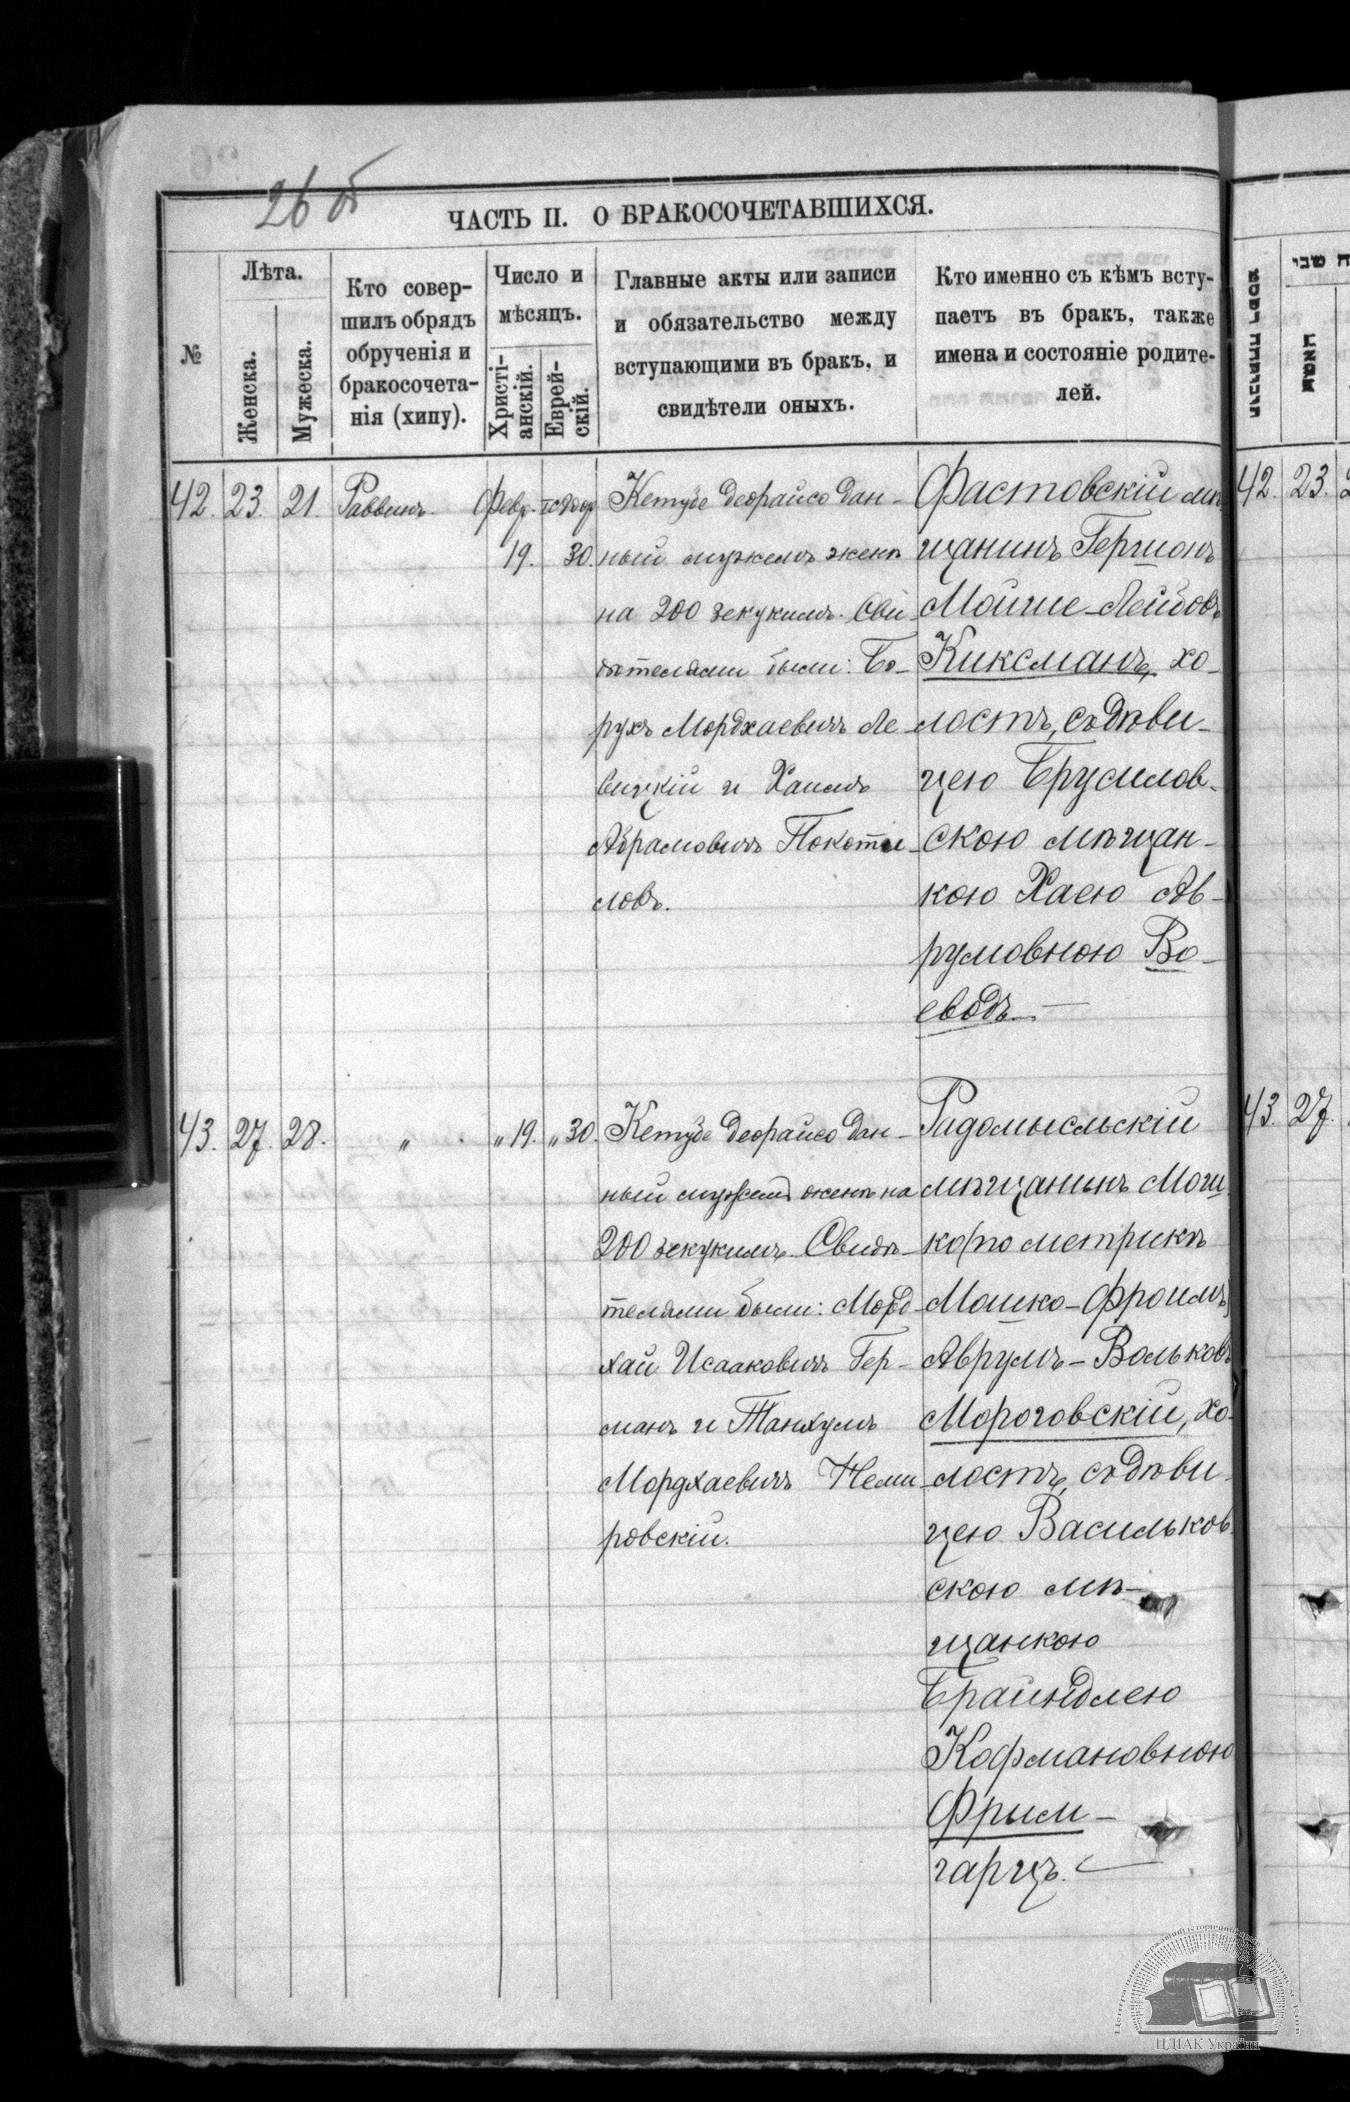 26 об
ЧАСТЬ II. О БРАКОСОЧЕТАВШИХСЯ.
№
Лѣта.
Женска.
Мужеска.
Кто совер-
шилъ обрядъ
обрученія и
бракосочета-
нія (хипу).
Число и
мѣсяцъ.
Христі-
анскій.
Еврей-
скій.
Главные акты или записи
и обязательство между
вступающими въ бракъ, и
свидѣтели оныхъ.
Кто именно съ кѣмъ всту-
паетъ въ бракъ, также
имена и состояніе родите-
лей.
42. 23. 21. Раввинъ. Февр.
19. 30.
Кетубе деорайсо дан-
ный мужемъ женѣ
на 200 зекукимъ. Сви-
дѣтелями были: Бо-
рухъ Мордхаевичъ Ле-
вицкій и Хаимъ
Абрамовичъ Покоти-
ловъ.
Фастовскій мѣ-
щанинъ Гершонъ
Мойше-Лейбовъ
Киксманъ, хо-
лостъ, съ дѣви-
цею Брусилов-
скою мѣщан-
кою Хаею Ав-
румовною Во-
еводъ.
43. 27. 28. „ „ 19. „ 30.
Кетубе деорайсо дан-
ный мужемъ женѣ на
200 зекукимъ. Свидѣ-
телями были: Морд-
хай Исааковичъ Гер-
манъ и Танхумъ
Мордхаевичъ Неми-
ровскій.
Радомысльскій
мѣщанинъ Мош-
ко (по метрикѣ
Мошко-Фроимъ)
Аврумъ-Вольковъ
Мороговскій, хо-
лостъ, съ дѣви-
цею Васильков-
скою мѣ-
щанкою
Брайндлею
Кофмановною
Фрым-
гарцъ.
42. 23.
43. 27.
ЦДІАК України